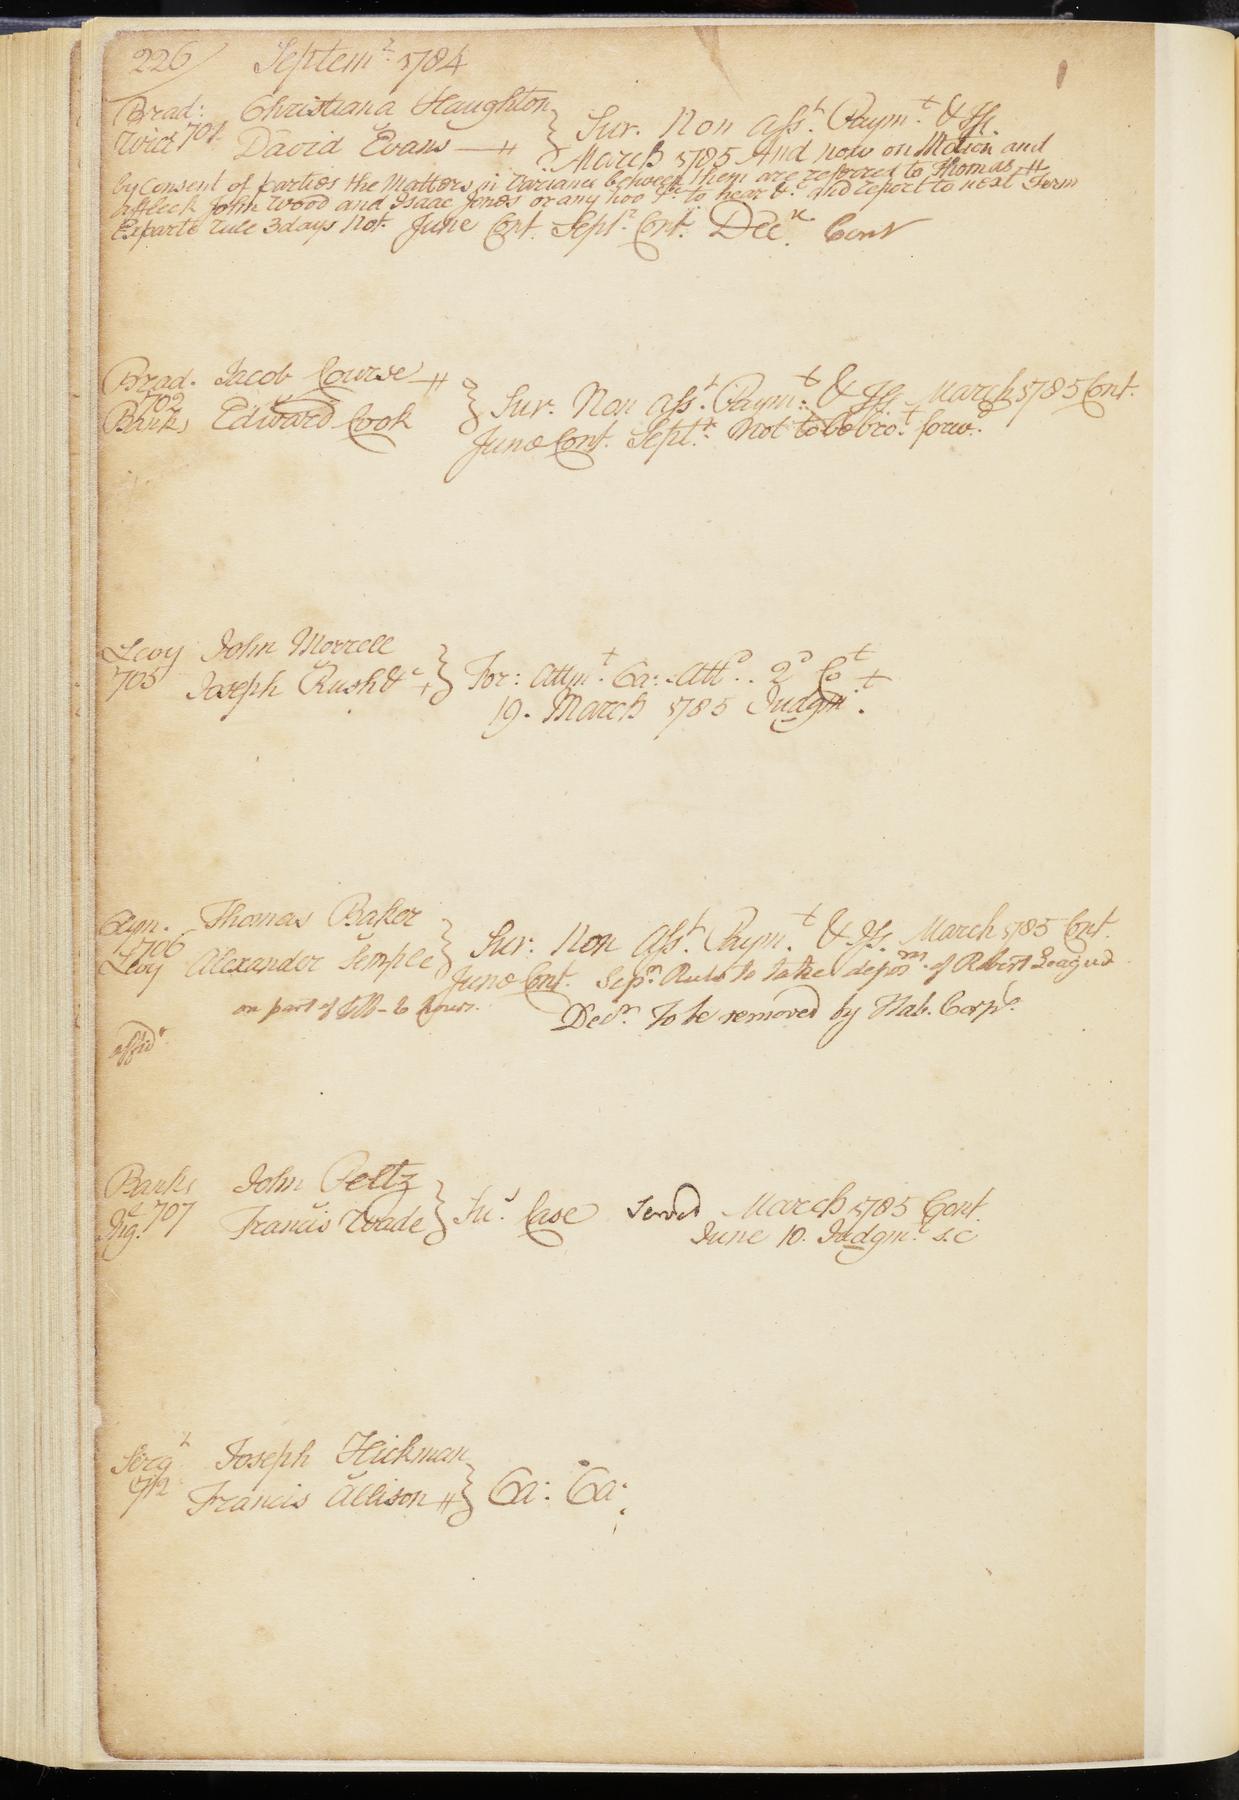 226 Septemr. 1784
Brad: Christiana Haughton
Wict 701 David Evans } Sur. Non Asst. Paymt. & Iss.
March 1785 And now on Motion and
by Consent of parties the Matters in Variance between them are referred to Thomas
Affleck John Wood and Isaac Jones or any two to hear &c. and report to next Term
Exparte rule 3 days Not. June Cont. Septr. Cont. Decr. Cont
Brad. Jacob Course
702
Banks Edward Cook } Sur. Non Asst. Paymt. & Iss. March 1785 Cont.
June Cont. Septr. Not to be brot. forwd.
Levy John Morrell
705 Joseph Rush &c } For: Attmt. Ca: Attd. 2d Ct
19. March 1785 Judgmt.
Thomas Baker
706
Levy Alexander Semple } Sur. Non Asst. Paymt. & Iss. March 1785 Cont.
June Cont. Sepr. Rule to take deposn. of Robert
on part of hours.
Decr. To be removed by Hab. Corps.
Banks John Peltz
Ing. 707 Francis Wade } Su. Case Served March 1785 Cont.
June 10. Judgmt. s.c
Sergt Joseph Hickman
712 Francis Allison } Ca: Ca: